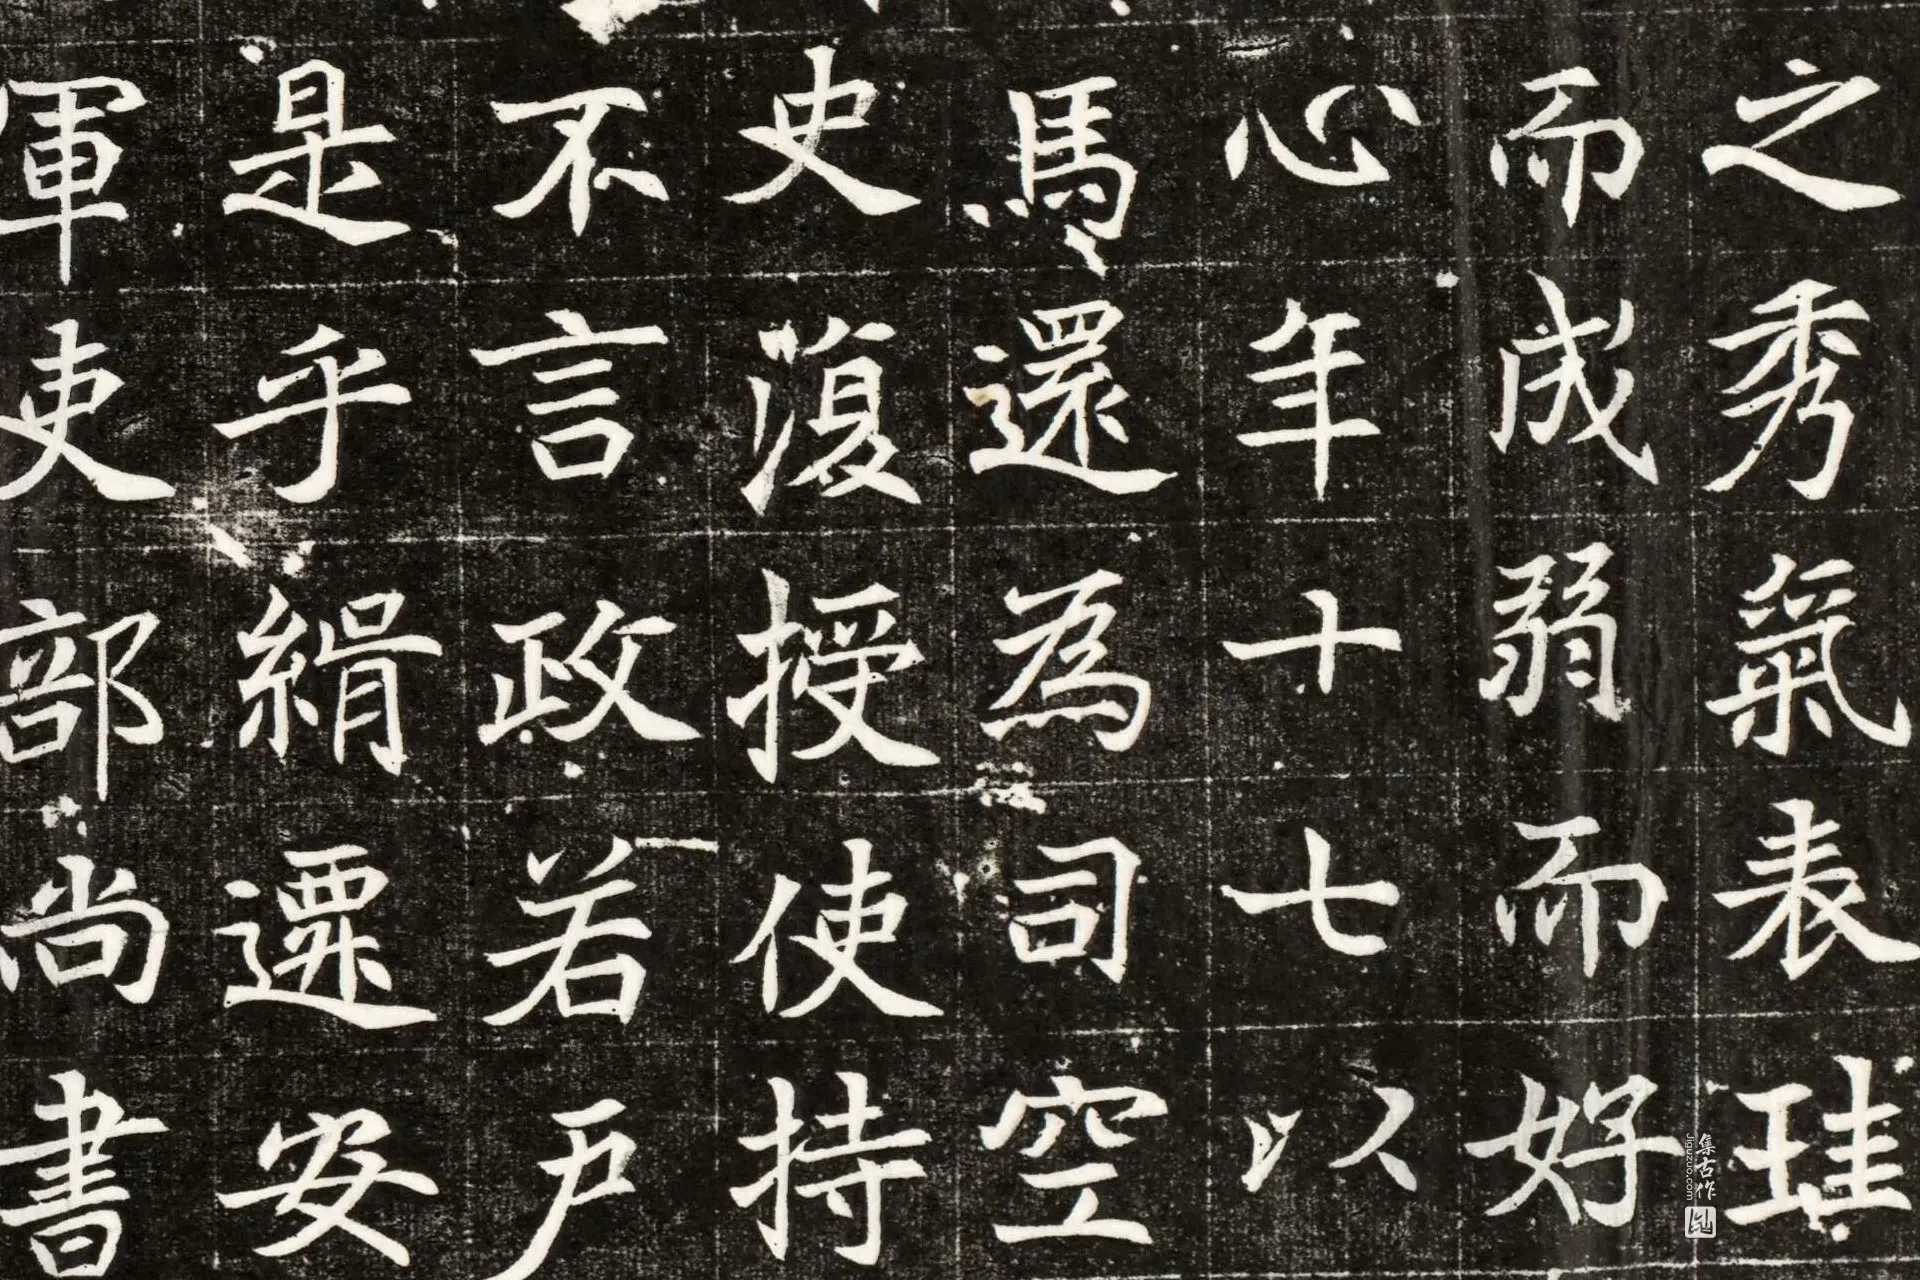 之秀氣表珪
而成弱而好
心年十七以
馬還為司空
史復授使持
不言政若戶
是乎緝遝安
軍吏部尚書
集古作
Jiguzuo.com